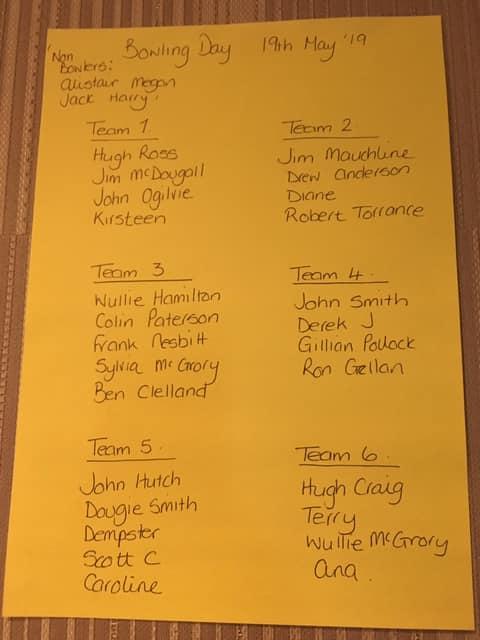 Bowling Day 19th May '19
'Non
Bowlers:
Alistair Megan
Jack Harry.
Team 1.
Hugh Ross
Jim McDougall
John Ogilvie
Kirsteen
Team 2
Jim Mauchline
Drew Anderson
Diane
Robert Torrance
Team 3
Wullie Hamilton
Colin Paterson
Frank Nesbitt
Sylvia McGrory
Ben Clelland
Team 4.
John Smith
Derek J
Gillian Pollock
Ron Gellan
Team 5.
John Hutch
Dougie Smith
Dempster
Scott C
Caroline
Team 6.
Hugh Craig
Terry
Wullie McGrory
Ana.